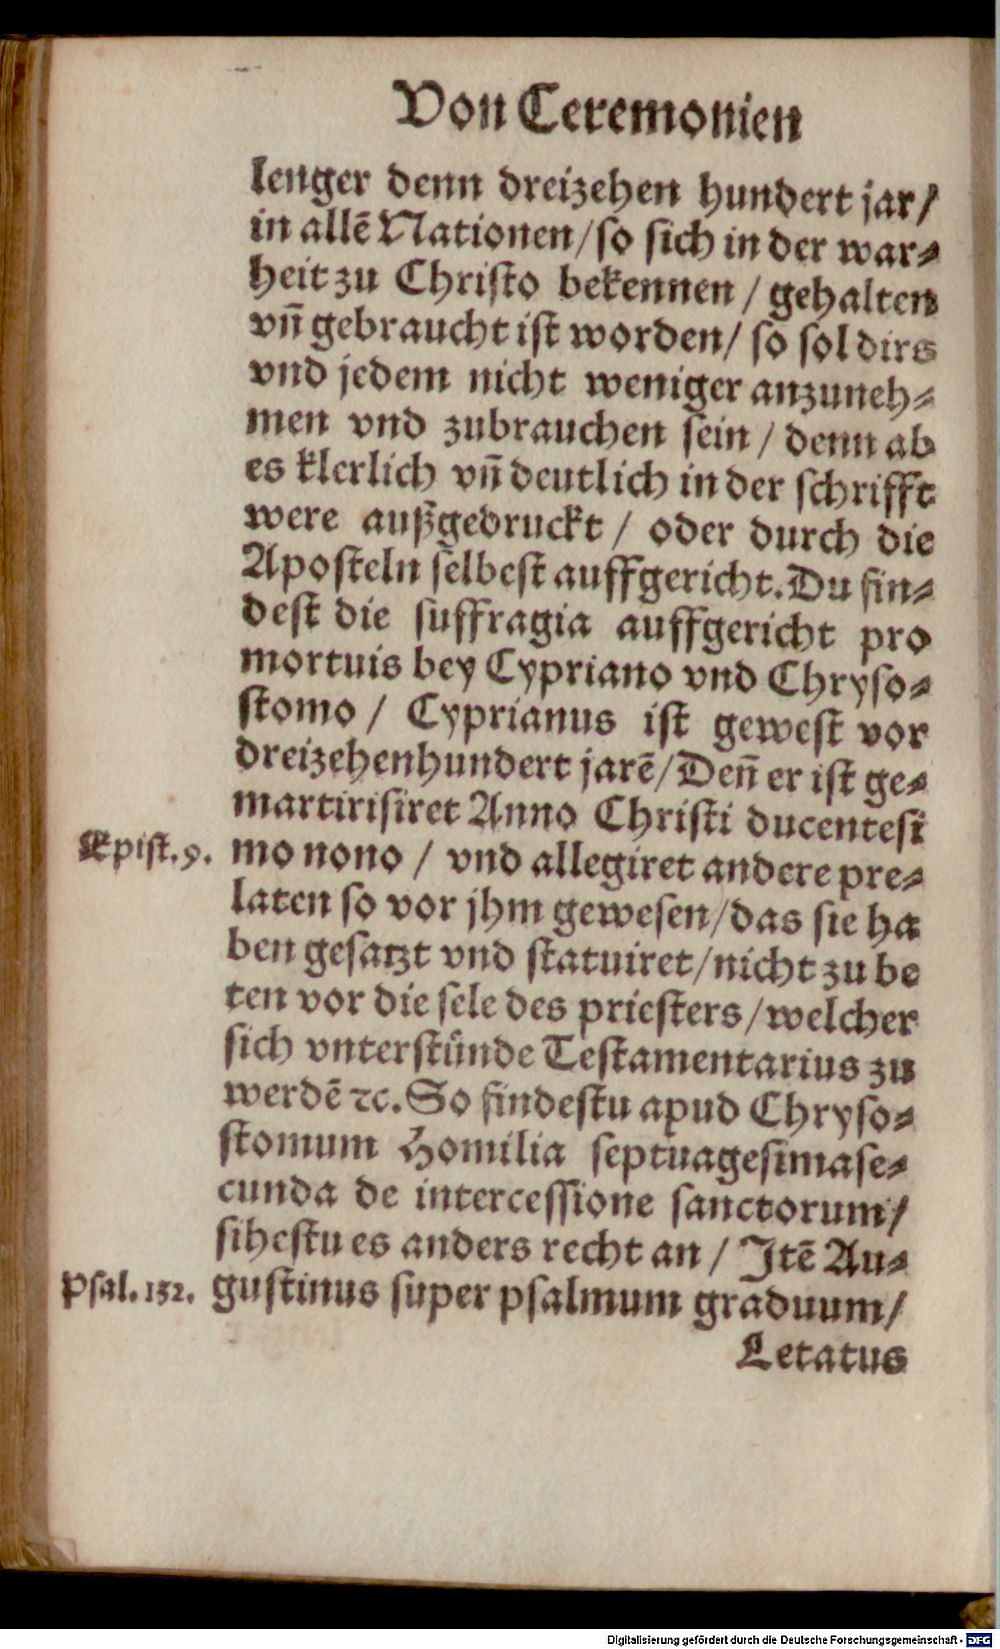 Von Ceremonien
lenger denn dreizehen hundert jar/
in allē Nationen/so sich in der war⸗
heit zu Christo bekennen / gehalten
vn̄ gebraucht ist worden/ so sol dirs
vnd jedem nicht weniger anzuneh⸗
men vnd zubrauchen sein / denn ab
es klerlich vn̄ deutlich in der schrifft
were außgedruckt / oder durch die
Aposteln selbest auffgericht. Du fin⸗
dest die suffragia auffgericht pro
mortuis bey Cypriano vnd Chryso⸗
stomo / Cyprianus ist gewest vor
dreizehenhundert jarē/ Den̄ er ist ge⸗
martirisiret Anno Christi ducentesi
Epist. 9. mo nono / vnd allegiret andere pre⸗
laten so vor jhm gewesen/das sie ha
ben gesatzt vnd statuiret/nicht zu be
ten vor die sele des priesters/welcher
sich vnterstünde Testamentarius zu
werdē ꝛc. So findestu apud Chryso⸗
stomum Homilia septuagesimase⸗
cunda de intercessione sanctorum/
sihestu es anders recht an / Jtē Au⸗
Psal. 132. gustinus super psalmum graduum/
Letatus
Digitalisierung gefördert durch die Deutsche Forschungsgemeinschaft - DFG